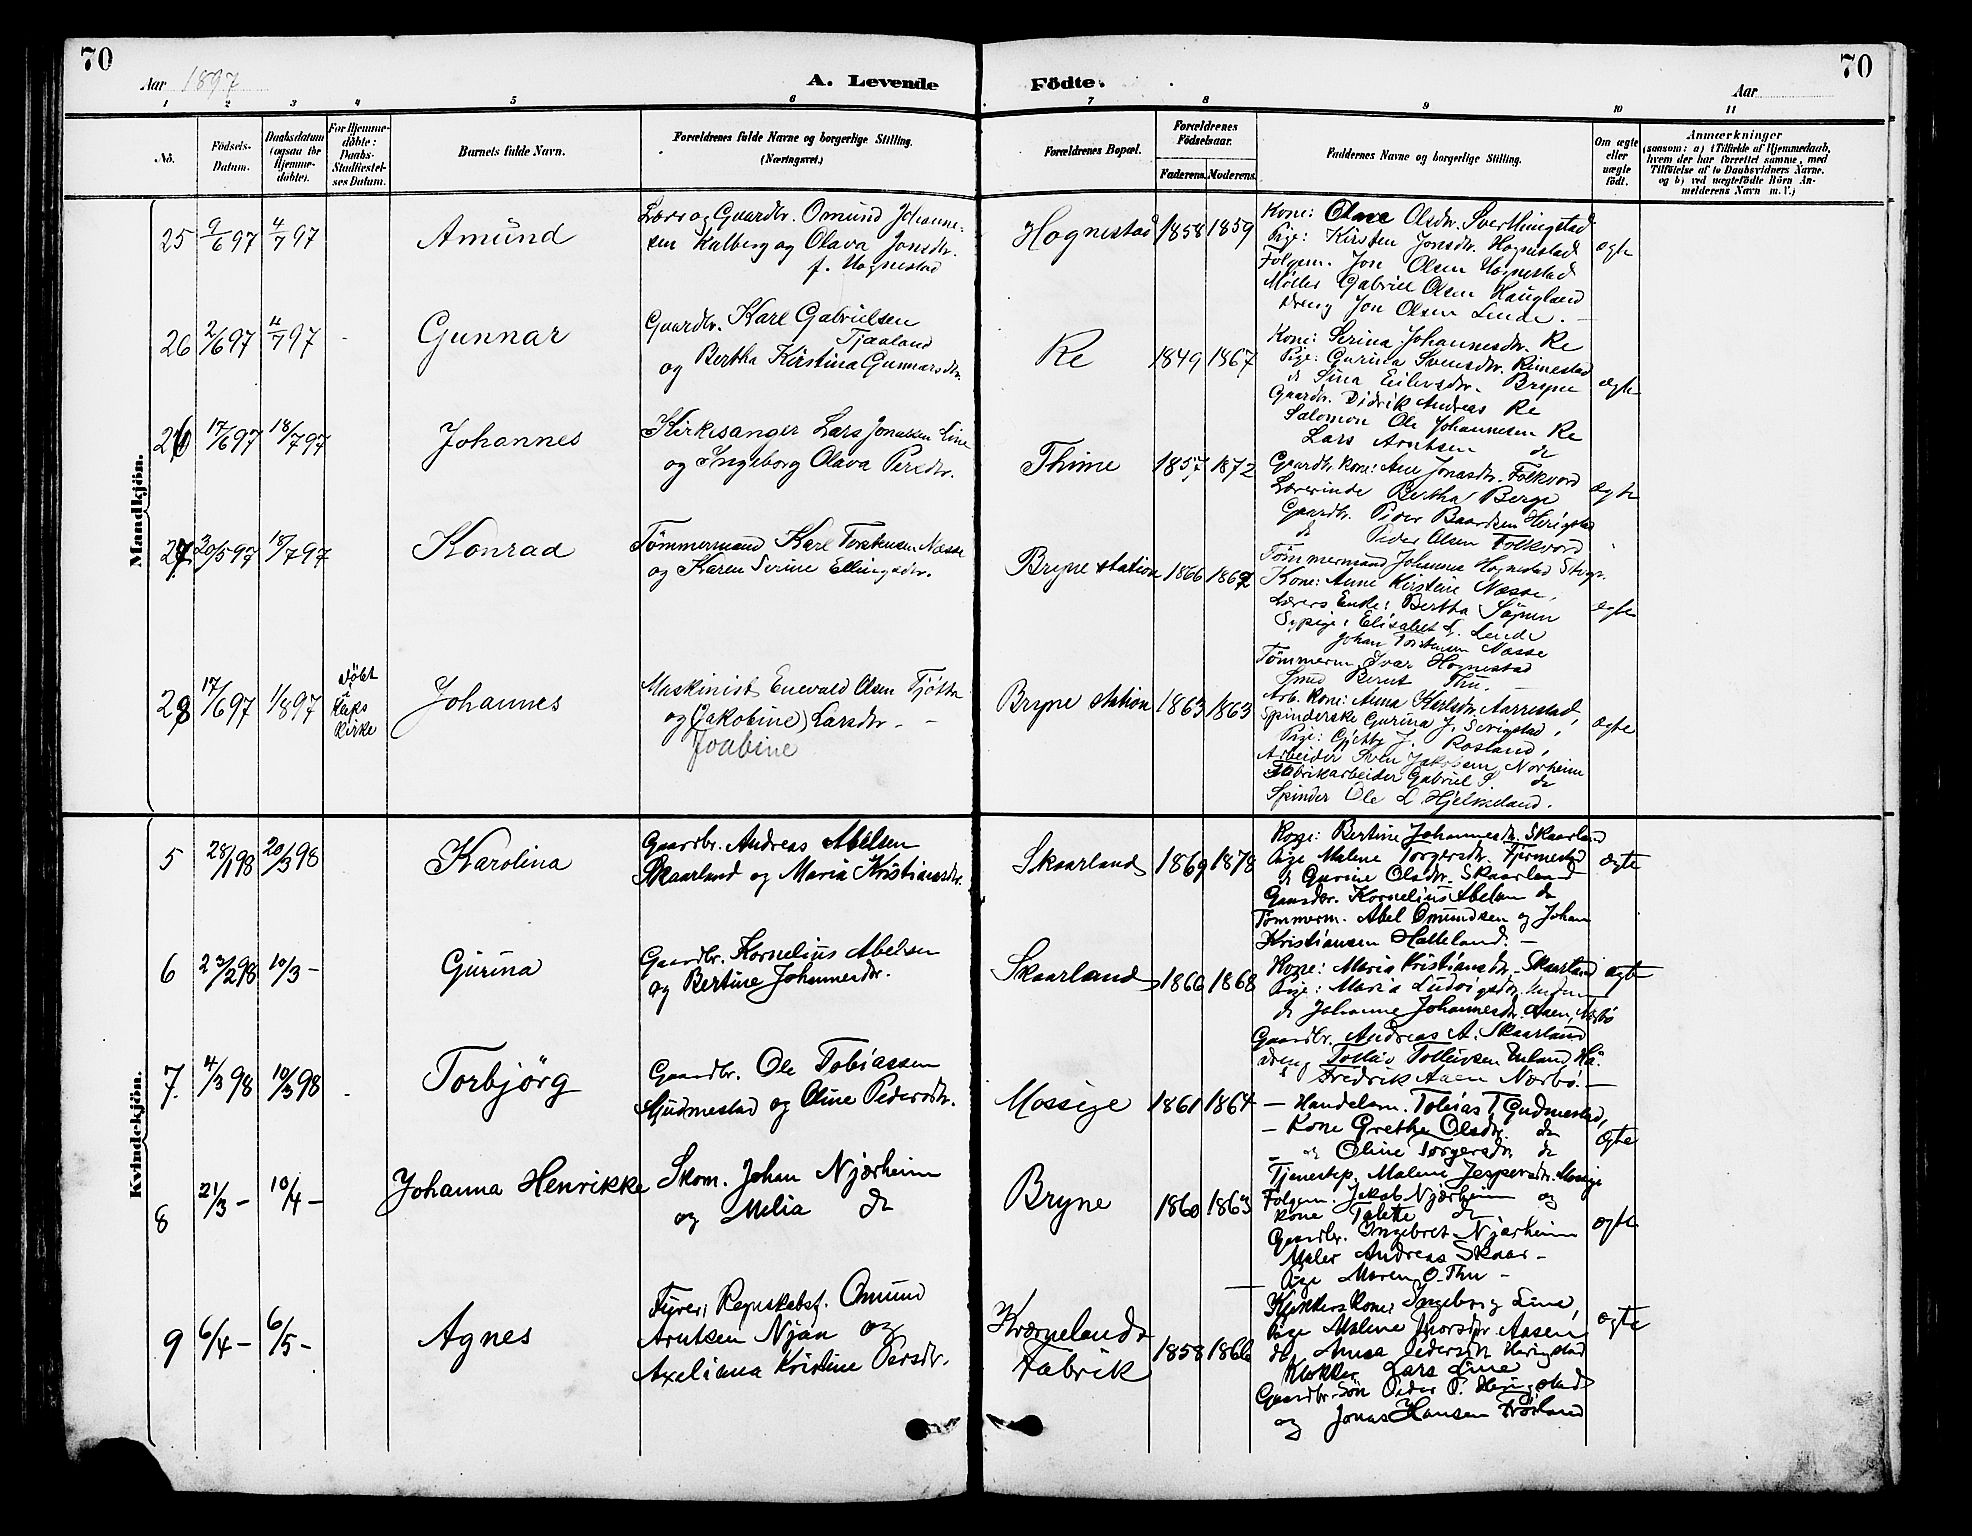 70
70
Aar 1897
A. Levende
Födte.
Aar
1 2 3 4 5 6 7 8 9 10 11
No.
Födsels-Datum.
Daabsdatum (ogsaa for Hjemmedöbte).
For Hjemmedöbte: Daabs-Stadfæstelses Datum.
Barnets fulde Navn.
Forældrenes fulde Navne og borgerlige Stilling.
(Næringsvei.)
Forældrenes Bopæl.
Forældrenes Födselsaar.
Faderens. Moderens.
Faddernes Navne og borgerlige Stilling.
Om ægte eller uægte födt.
Anmærkninger
(saasom: a) i Tilfælde af Hjemmedaab,
hvem der har forrettet samme, med
Tilföielse af to Daabsvidners Navne,
og b) ved uægtefödte Börn An-
melderens Navn m. V.)
Mandkjön.
25 9/6 97 4/7 97
Amund
Lærer og Gaardbr. Omund Johanne-
sen Kalberg og Olava Jonsdtr.
f. Hognestad
Hognestad 1858 1859
Kone: Olave Olsdtr. Sverthingstad
Pige: Kirsten Jonsdtr. Hognestad
Folgem. Jon Olsen Hognestad
Møller Gabriel Olsen Haugland
Dreng Jon Olsen Lende. —
ægte
26 2/6 97 4/7 97
Gunnar
Gaardbr. Karl Gabrielsen
Tjaaland
og Bertha Kirstina Gunnarsdtr.
Re 1849 1867
Kone: Serina Johannesdtr. Re
Pige: Gurina Svensdtr. Rimestad
do Sina Eilersdtr. Bryne
Gaardbr. Didrik Andreas Re
Salomon Ole Johannesen Re
Lars Arntsen do
ægte
26 17/6 97 18/7 97
Johannes
Kirkesanger Lars Jonassen Line
og Ingeborg Olava Persdtr.
Thime 1857 1872
Gaardbr. kone: Ane Jonasdtr. Folkvord
Lærerinde Bertha Berge
Gaardbr. Peder Baardsen Herigstad
do Peder Olsen Folkvord
ægte
27 20/5 97 18/7 97
Konrad
Tømmermand Karl Torstensen Næsse
og Karen Serine Ellingsdtr.
Bryne station 1866 1862
Tømmermand Johannes Hognestad
Kone: Anne Kirstine Næsse,
Lærers Enke: Bertha
Sypige: Elisabet L. Lende
Johan Torstensen Næsse
Tømmerm. Ivar Hognestad
Smed Bernt Thu. —
ægte
28 17/6 97 1/8 97
Døbt i Kleps Kirke
Johannes
Maskinist Enevald Olsen Tjøtta
og (Jakobine) Larsdtr. —
Joabine
Bryne station 1863 1863
Arb. kone: Anna Karlsdtr. Aarrestad,
Spinderske Gurina J. Serigstad,
Pige: J. Rosland,
Arbeider Sven Jakobsen Norheim
Fabrikarbeider Gabriel S. do
Spinder Ole L. Hjelmeland.
ægte
Kvindekjön.
5 28/1 98 20/3 98
Karolina
Gaardbr. Andreas Abelsen
Skaarland og Maria Kristiansdtr.
Skaarland 1869 1878
Kone: Bertine Johannesdtr. Skaarland
Pige Malene Torgersdtr. Fjermestad
do Gurine Olsdtr. Skaarland
Gaardbr. Kornelius Abelsen do
Tømmerm. Abel Omundsen og Johan
Kristiansen Hatteland. —
ægte
6 23/2 98 10/3 –
Gurina
Gaardbr. Kornelius Abelsen
og Bertine Johannesdtr.
Skaarland 1866 1868
Kone: Maria Kristiansdtr. Skaarland
Pige: Maria Ludvigsdtr.
do Johanne Johannesdtr. Aasen, Nærbø
Gaardbr. Andreas A. Skaarland
dreng Tollev Tollevsen Undland Hå.
Fredrik Aasen Nærbø. —
ægte
7 4/3 98 10/3 98
Torbjörg
Gaardbr. Ole Tobiassen
Gudmestad og Oline Pedersdtr.
Mossige 1861 1864
— Handelsm. Tobias T. Gudmestad,
— Kone Grethe Olsdtr. do
— og Oline Torgersdtr. do
Tjenestep. Malene Jespersdtr. Mossige
ægte
8 21/3 – 10/4 –
Johanna Henrikke
Skom. Johan Njærheim
og Melia do
Bryne 1860 1863
Folgem. Jakob Njærheim og
kone Talette do
Gaardbr. Ingebret Njærheim
Maler Andreas Skaar —
Pige Maren O. Thu —
ægte
9 6/4 – 6/5 –
Agnes
Fyrer, Regnskabsf. Omund
Arntsen Njån og
Axeliana Kristine Persdtr.
Kværnelands
Fabrik 1858 1866
Klokkers kone: Ingeborg Line,
Pige Malene Thorsdtr Aasen
do, Anna Pedersdtr Herigstad
Klokker Lars Line
Gaardbr. Søn Peder P. Herigstad
og Jonas Hansen Frøiland
ægte